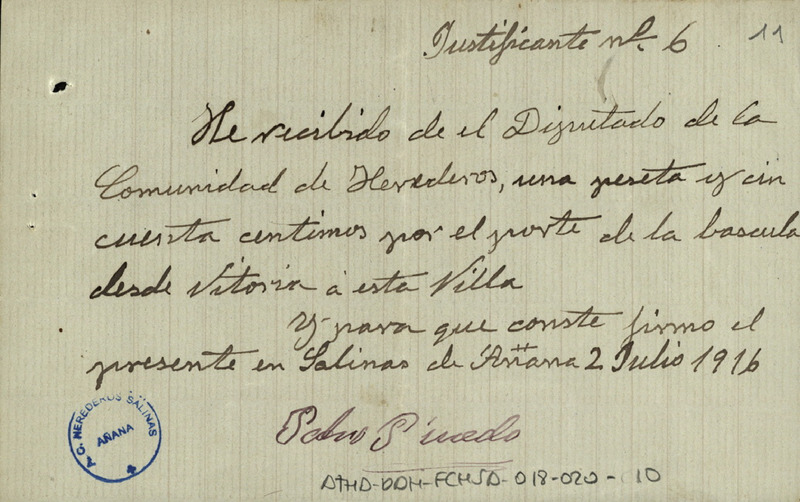 Justificante nº. 6 11
He recibido de el Diputado de la
Comunidad de Herederos, una peseta y cin
cuenta centimos por el porte de la bascula
desde Vitoria á esta Villa
Y para que conste firmo el
presente en Salinas de Añana 2 Julio 1916
Pedro Pinedo
A.C. HEREDEROS SALINAS
AÑANA
ATHA-DAH-FCHSA-018-020-10